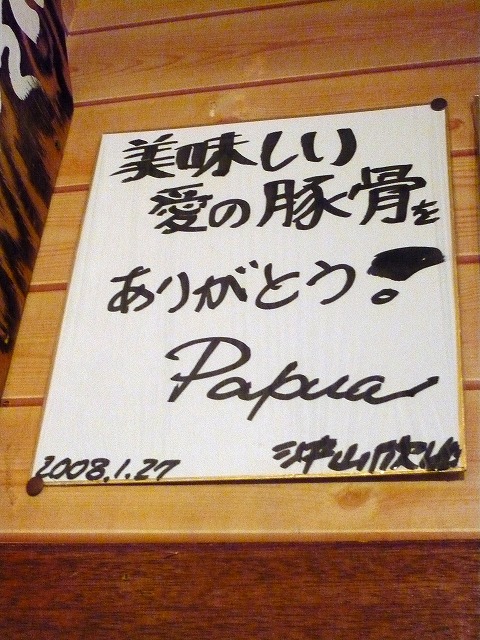 美味しい
愛の豚骨を
ありがとう!
Papua
2008.1.27